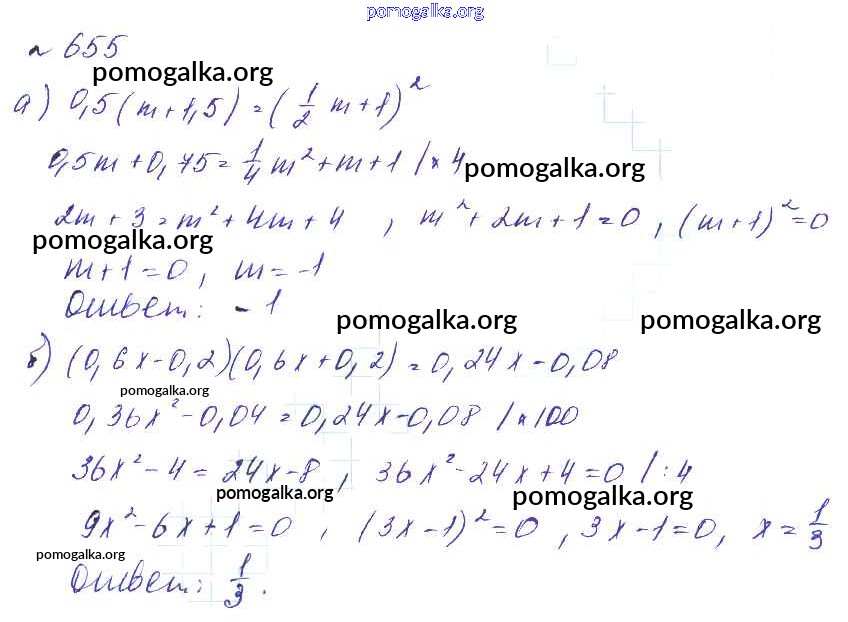 pomogalka.org
№ 655
pomogalka.org
а) 0,5(m+1,5) = (1/2 m+1)²
0,5m+0,75 = 1/4 m²+m+1 /×4
pomogalka.org
2m+3 = m²+4m+4 , m²+2m+1=0 , (m+1)²=0
pomogalka.org
m+1=0 , m=-1
Ответ: -1
pomogalka.org pomogalka.org
б) (0,6x-0,2)(0,6x+0,2) = 0,24x-0,08
pomogalka.org
0,36x²-0,04 = 0,24x-0,08 /×100
36x²-4 = 24x-8 , 36x²-24x+4=0 /:4
pomogalka.org pomogalka.org
9x²-6x+1=0 , (3x-1)²=0 , 3x-1=0, x=1/3
pomogalka.org
Ответ: 1/3.